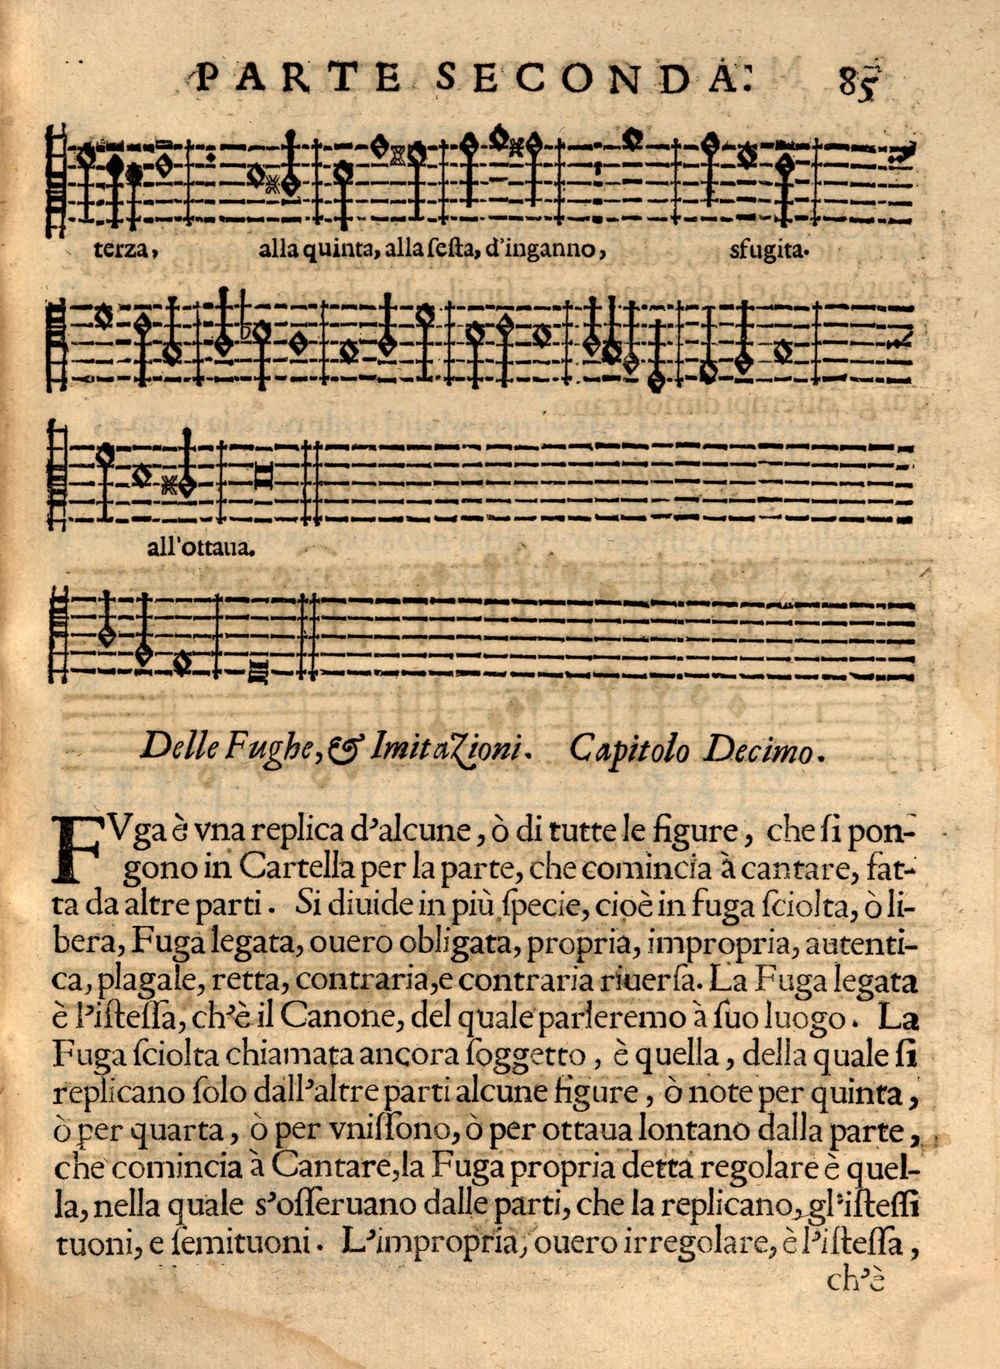 PARTE SECONDA. 85
terza, alla quinta, alla ſeſta, d'inganno, sfugita.
all'ottaua.
Delle Fughe, & Imitazioni. Capitolo Decimo.
FVga è vna replica d'alcune, ò di tutte le figure, che ſi pon-
gono in Cartella per la parte, che comincia à cantare, fat-
ta da altre parti. Si diuide in più ſpecie, cioè in fuga ſciolta, ò li-
bera, Fuga legata, ouero obligata, propria, impropria, autenti-
ca, plagale, retta, contraria, e contraria riuerſa. La Fuga legata
è l'iſteſſa, ch'è il Canone, del quale parleremo à ſuo luogo. La
Fuga ſciolta chiamata ancora ſoggetto, è quella, della quale ſi
replicano ſolo dall'altre parti alcune figure, ò note per quinta,
ò per quarta, ò per vniſſono, ò per ottaua lontano dalla parte,
che comincia à Cantare, la Fuga propria detta regolare è quel-
la, nella quale s'oſſeruano dalle parti, che la replicano, gl'iſteſſi
tuoni, e ſemituoni. L'impropria, ouero irregolare, è l'iſteſſa,
ch'è